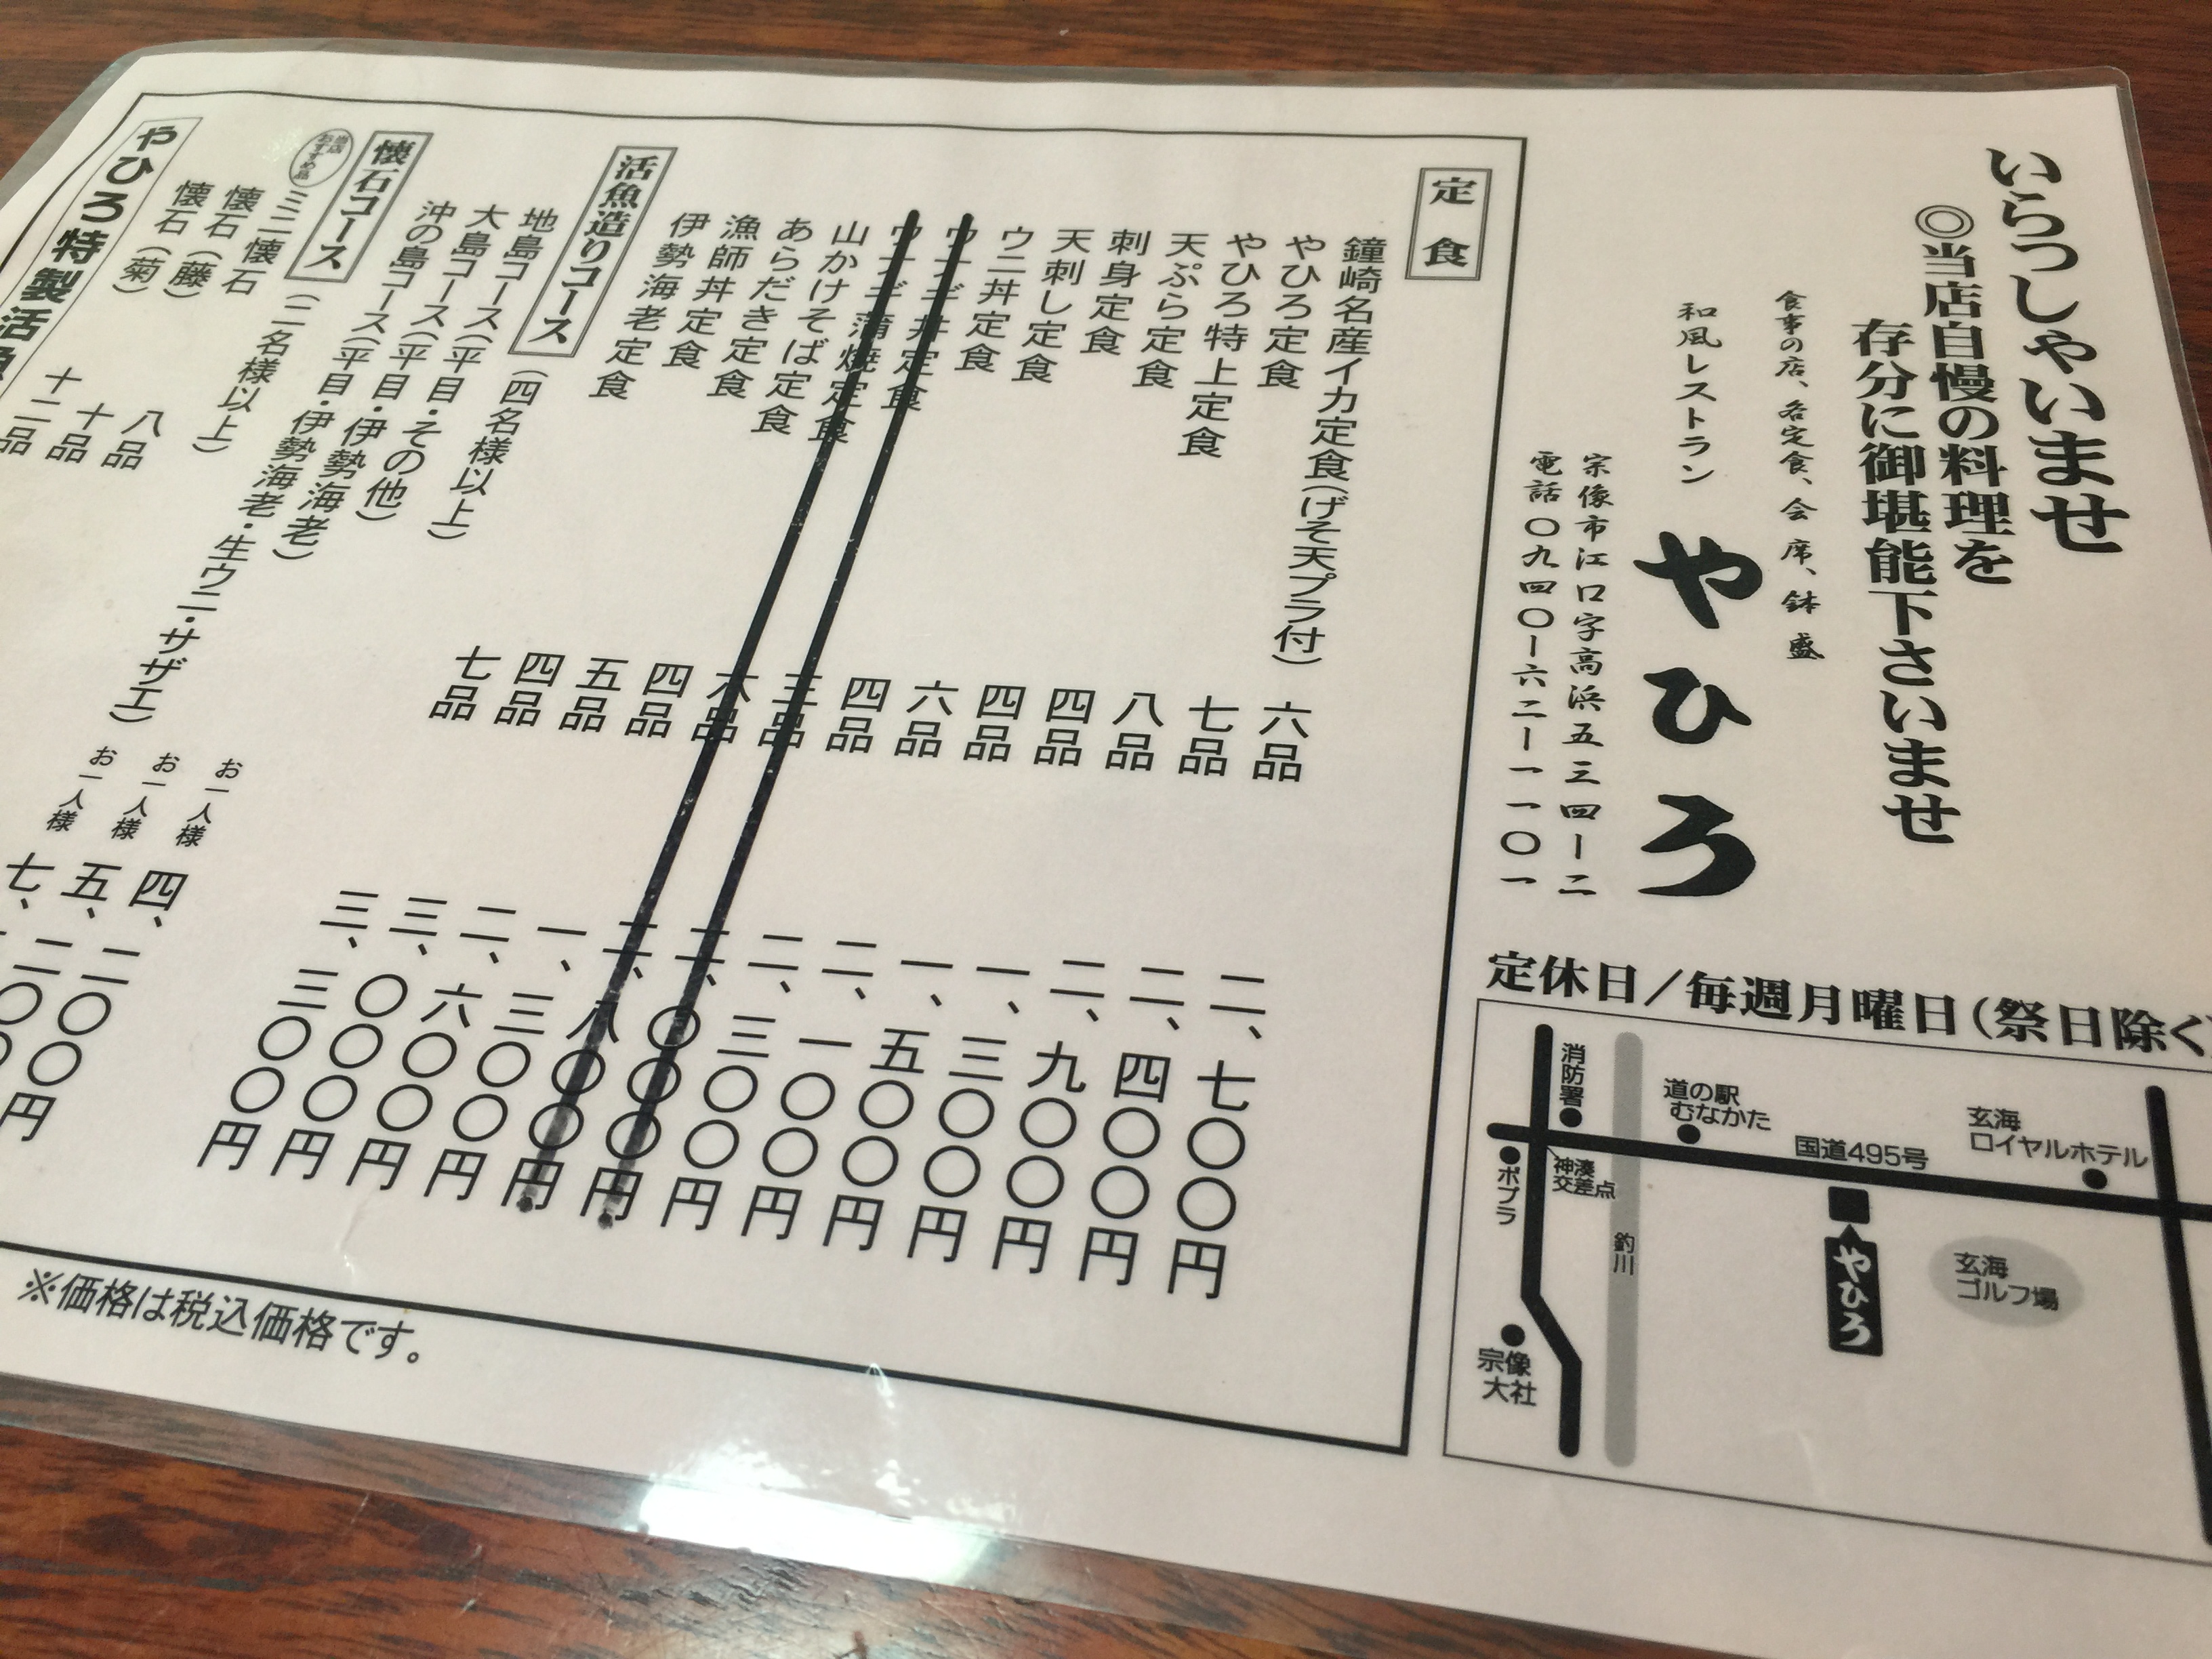 いらっしゃいませ
◎当店自慢の料理を
存分に御堪能下さいませ
食事の店、各定食、会席、鉢盛
和風レストラン やひろ
宗像市江口字高浜五三四ー二
電話〇九四〇ー六二ー一一〇一
定休日/毎週月曜日(祭日除く
消防署
道の駅
むなかた
国道495号
玄海
ロイヤルホテル
ポプラ
神湊
交差点
釣川
やひろ
玄海
ゴルフ場
宗像
大社
定食
鐘崎名産イカ定食(げそ天プラ付) 六品 二、七〇〇円
やひろ定食 七品 二、四〇〇円
やひろ特上定食 八品 二、九〇〇円
天ぷら定食 四品 一、三〇〇円
刺身定食 四品 一、五〇〇円
天刺し定食 六品 二、一〇〇円
ウニ丼定食 四品 二、三〇〇円
ウナギ丼定食 三品 二、〇〇〇円
ウナギ蒲焼定食 六品 二、八〇〇円
山かけそば定食 四品 一、三〇〇円
あらだき定食 五品 二、六〇〇円
漁師丼定食 四品 三、〇〇〇円
伊勢海老定食 七品 三、三〇〇円
活魚造りコース(四名様以上)
地島コース(平目・その他) お一人様 四、二〇〇円
大島コース(平目・伊勢海老) お一人様 五、二〇〇円
沖の島コース(平目・伊勢海老・生ウニ・サザエ) お一人様 七、
懐石コース(二名様以上)
当店おすすめ品
ミニ懐石 八品
懐石(藤) 十品
懐石(菊) 十二品
やひろ特製活魚
※価格は税込価格です。